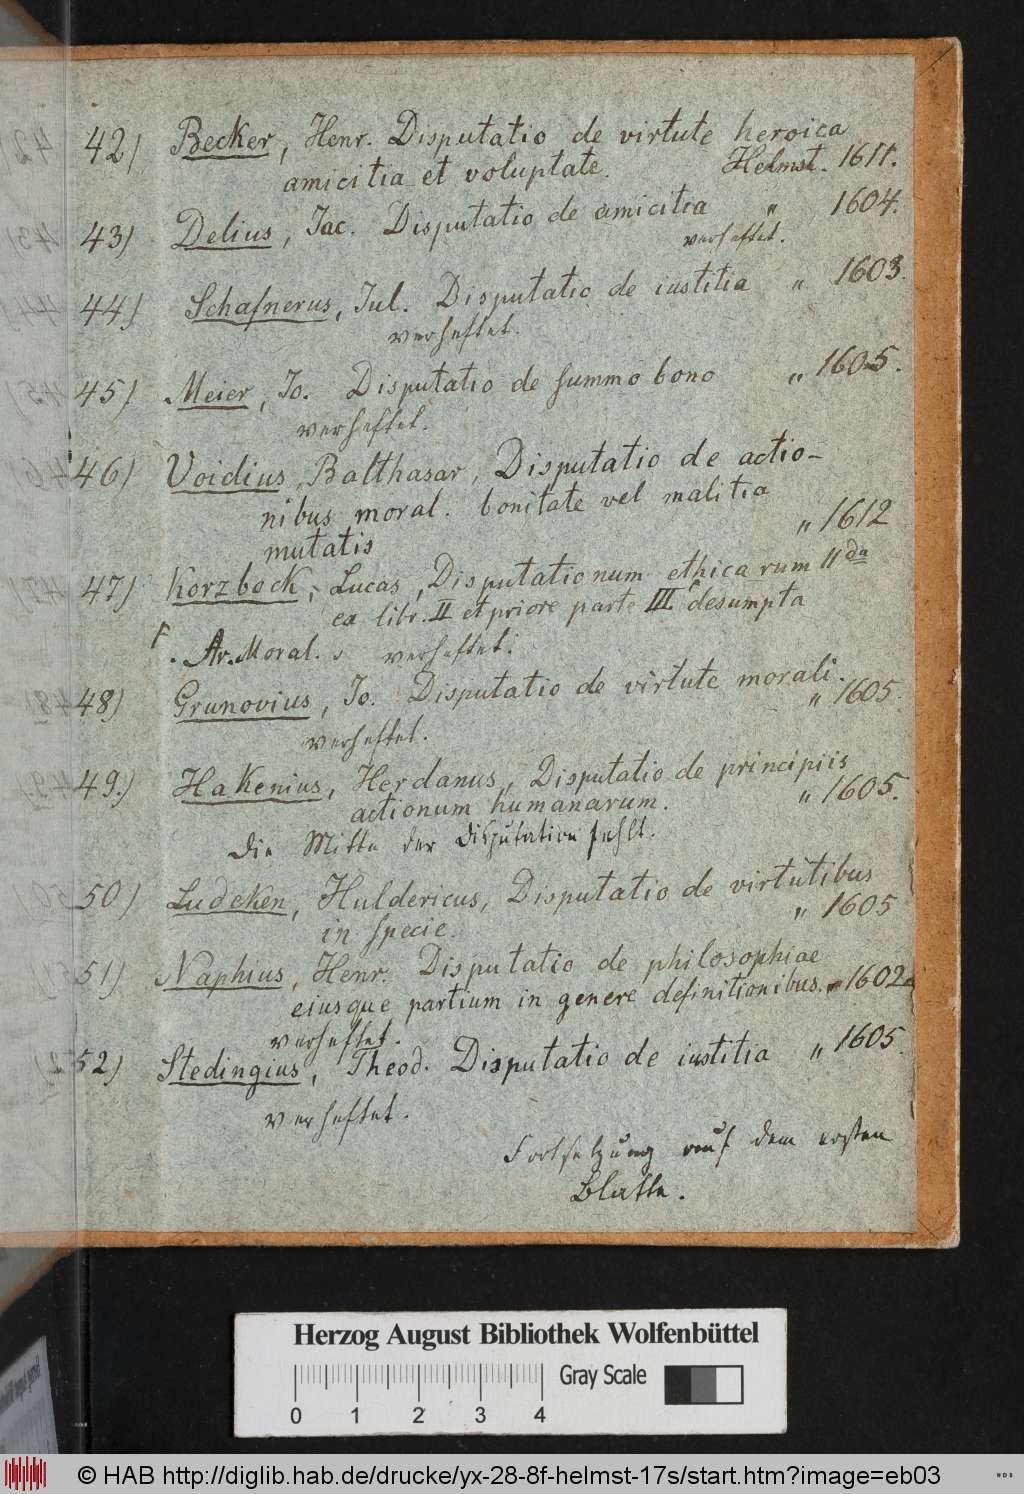 42) Becker, Henr. Disputatio de virtute heroica
amicitia et voluptate. Helmst. 1611.
43) Delius, Jac. Disputatio de amicitia " 1604.
verheftet.
44) Schafnerus, Jul. Disputatio de iustitia " 1603.
verheftet.
45) Meier, Jo. Disputatio de summo bono " 1605.
verheftet.
46) Voidius, Balthasar, Disputatio de actio-
nibus moral. bonitate vel malitia
mutatis " 1612
47) Korzbock, Lucas, Disputationum ethicarum IIda
ex libr. II et priore parte III desumpta
Ar. Moral. verheftet.
48) Grunovius, Jo. Disputatio de virtute morali.
" 1605.
verheftet.
49.) Hakenius, Herdanus, Disputatio de principiis
actionum humanarum. " 1605.
Die Mitte der Disputation fehlt.
50) Ludeken, Huldericus, Disputatio de virtutibus
in specie. " 1605
51) Naphius, Henr. Disputatio de philosophiae
eiusque partium in genere definitionibus. 1602
verheftet.
52) Stedingius, Theod. Disputatio de iustitia " 1605.
verheftet.
Fortsetzung auf dem ersten
Blatte.
Herzog August Bibliothek Wolfenbüttel
Gray Scale
0 1 2 3 4
© HAB http://diglib.hab.de/drucke/yx-28-8f-helmst-17s/start.htm?image=eb03